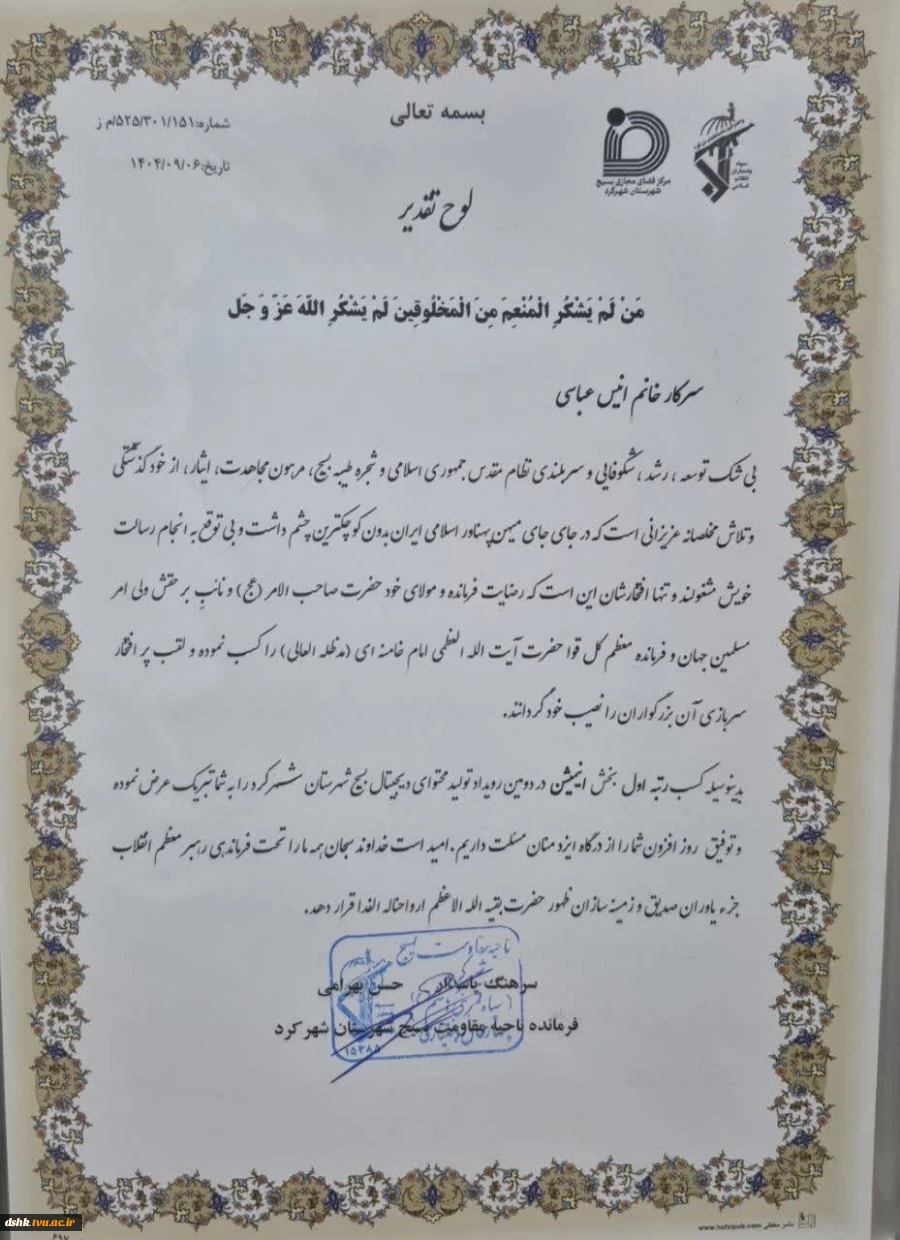 بسمه تعالی
شماره:۵۲۵/۳۰۱/۱۵۱/م ز
تاریخ:۱۴۰۴/۰۹/۰۶
سپاه
پاسداران
انقلاب
اسلامی
مرکز فضای مجازی بسیج
شهرستان شهرکرد
لوح تقدیر
مَنْ لَمْ یَشْکُرِ الْمُنْعِمَ مِنَ الْمَخْلُوقِینَ لَمْ یَشْکُرِ اللَّهَ عَزَّ وَ جَل
سرکار خانم انیس عباسی
بی شک توسعه ، رشد ، شکوفایی و سربلندی نظام مقدس جمهوری اسلامی و شجره طیبه بسیج ، مرهون مجاهدت ، ایثار ، از خود گذشتگی
و تلاش مخلصانه عزیزانی است که در جای جای میهن پهناور اسلامی ایران بدون کوچکترین چشم داشت و بی توقع به انجام رسالت
خویش مشغولند و تنها افتخارشان این است که رضایت فرمانده و مولای خود حضرت صاحب الامر (عج) و نائبِ بر حقش ولی امر
مسلمین جهان و فرمانده معظم کل قوا حضرت آیت الله العظمی امام خامنه ای (مدظله العالی) را کسب نموده و لقب پر افتخار
سربازی آن بزرگواران را نصیب خود گردانند.
بدینوسیله کسب رتبه اول بخش انیمیشن در دومین رویداد تولید محتوای دیجیتال بسیج شهرستان شهرکرد را به شما تبریک عرض نموده
و توفیق روز افزون شما را از درگاه ایزد منان مسئلت داریم . امید است خداوند سبحان همه ما را تحت فرماندهی رهبر معظم انقلاب
جزء یاوران صدیق و زمینه سازان ظهور حضرت بقیه الله الاعظم ارواحناله الفدا قرار دهد.
ناحیه مقاومت بسیج
سرهنگ پاسدار حسن بهرامی
فرمانده ناحیه مقاومت بسیج شهرستان شهر کرد
۱۵۳۸۵
dshk.tvu.ac.ir
۶۹۷
www.hafizpub.com